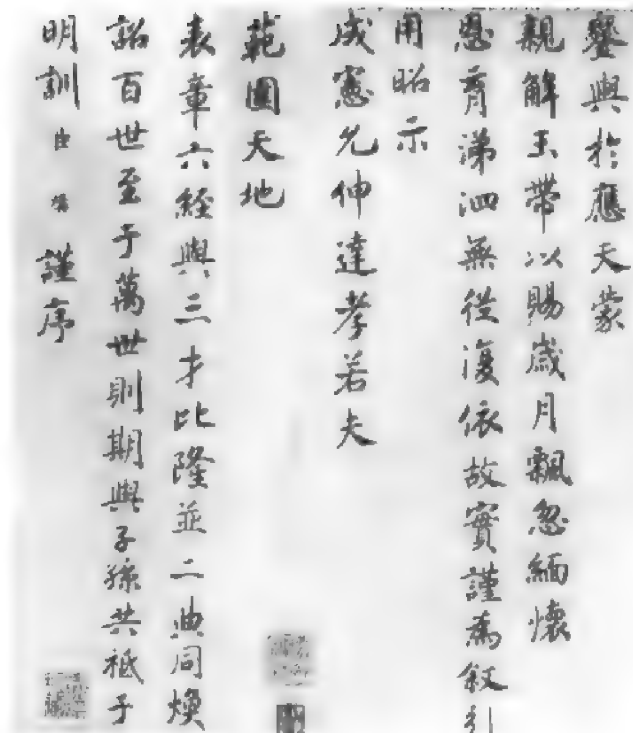 鑾輿於應天蒙
親解玉帶以賜歲月飄忽緬懷
恩賚涕泗無從復依故實謹為敘引
用昭示
成憲允伸達孝若夫
範圍天地
表章六經與三才比隆並二典同煥
詔百世至于萬世則期與子孫共祗于
明訓臣 謹序